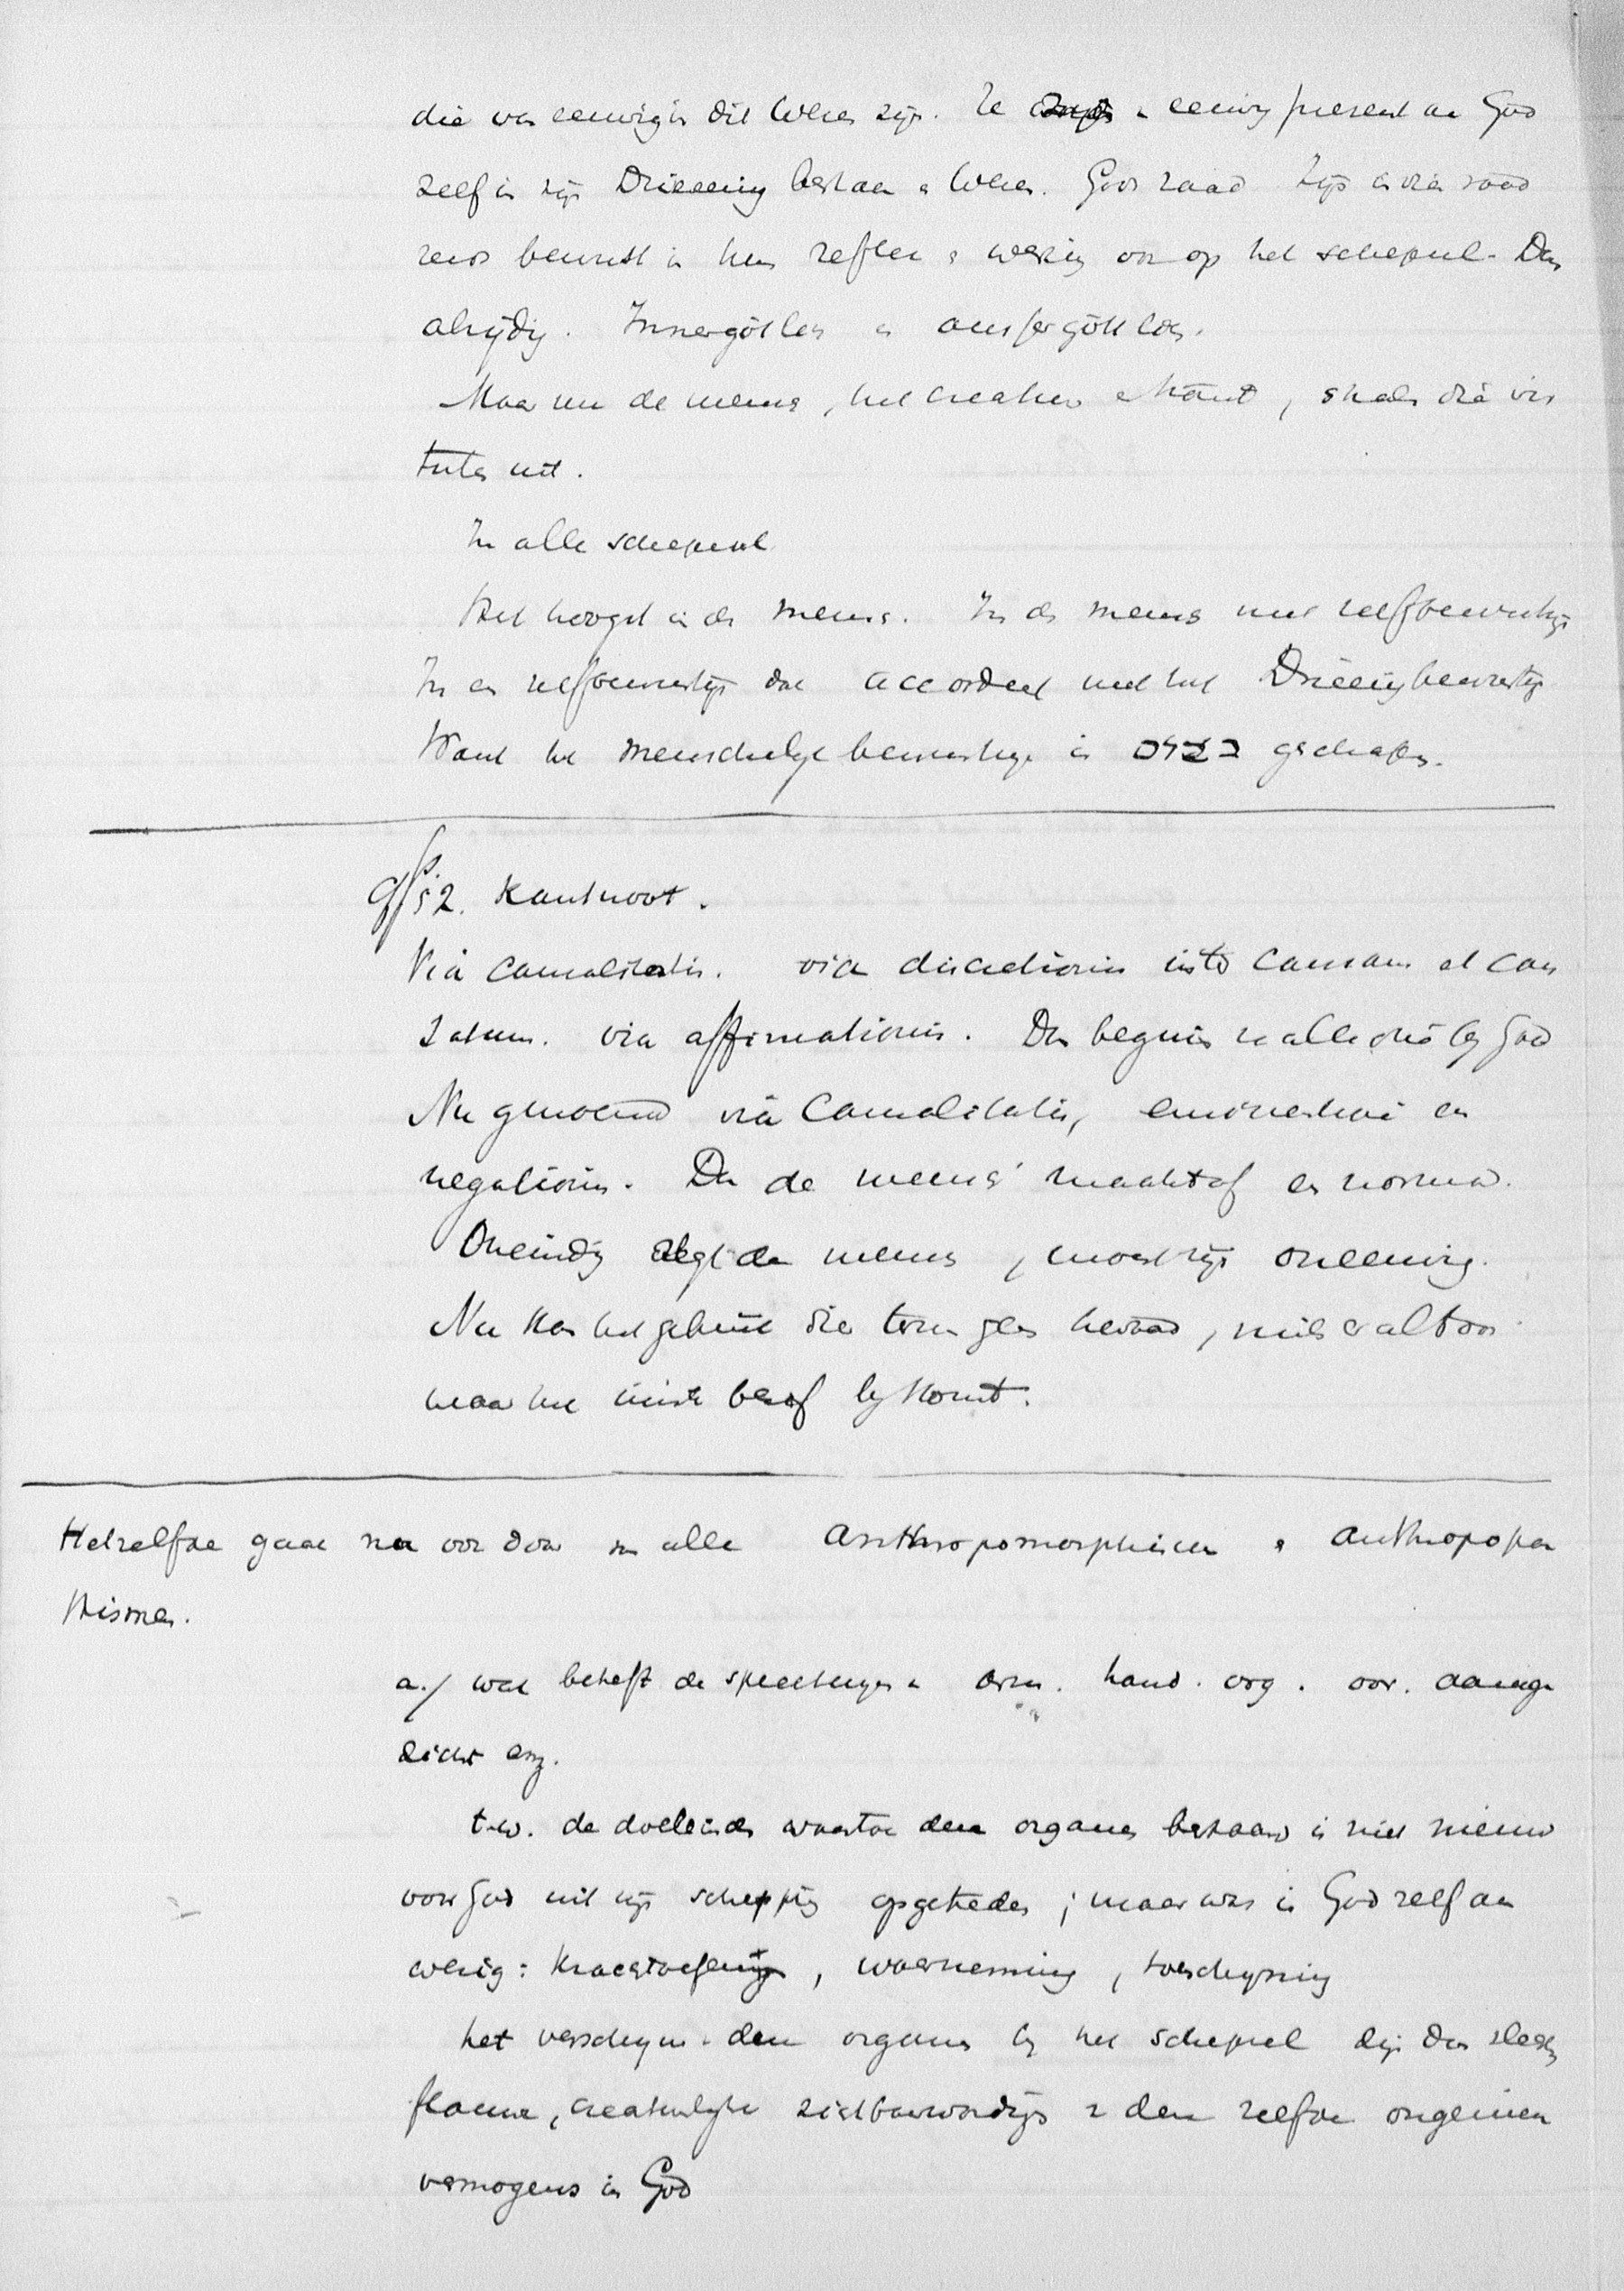 die van eeuwig in dit Wezen zijn. Ze zijn eeuwig present in God
zelf in zijn Drieeenig bestaan en Wezen. Gods raad zijn in die raad
reeds bewust in hun reflex en werking ook op het schepsel. Dus
altijdig. Innergöttlich en ausfergöttlich.
Maar nu de mensch, het creatuur erkent, straalt die vir
tutes uit.
In alle schepsel
Het hoogst in den mensch. In den mensch met zelfbewustzijn
In een zelfbewustzijn dat accordeert met het Drieenig bewustzijn
Want het menschelijk bewustzijn is בצלם geschapen.
§ 52. Kantnoot.
Via causalitatis. via discretionis inter causam et cau
satum. via affirmationis. Dan beginnen ze alle drie bij God
Nu genoemd via Causalitatis, eminentiae en
negationis. Dan de mensch maatstaf en norma.
Oneindig zegt de mensch, moest zijn oneenig.
Nu kan het gebruik dier termen geen kwaad, mits er altoos
maar het juiste besef bij komt.
Hetzelfde gaat nu ook door in alle Anthropomorphismen en Anthropopa
thismen.
a./ wat betreft de spreekwijzen arm. hand. oog. oor. aange
zicht enz.
t.w. de doeleinden waartoe deze organen bestaan is niet nieuw
voor God uit zijn schepping opgetreden; maar was in God zelf aan
wezig: Krachtoefening, waarneming, toeschijning
het verschijnen dezer organen bij het schepsel zijn dan slechts
flauwe, creatuurlijke zichtbaarwordingen dezer zelfde ongeziene
vermogens in God